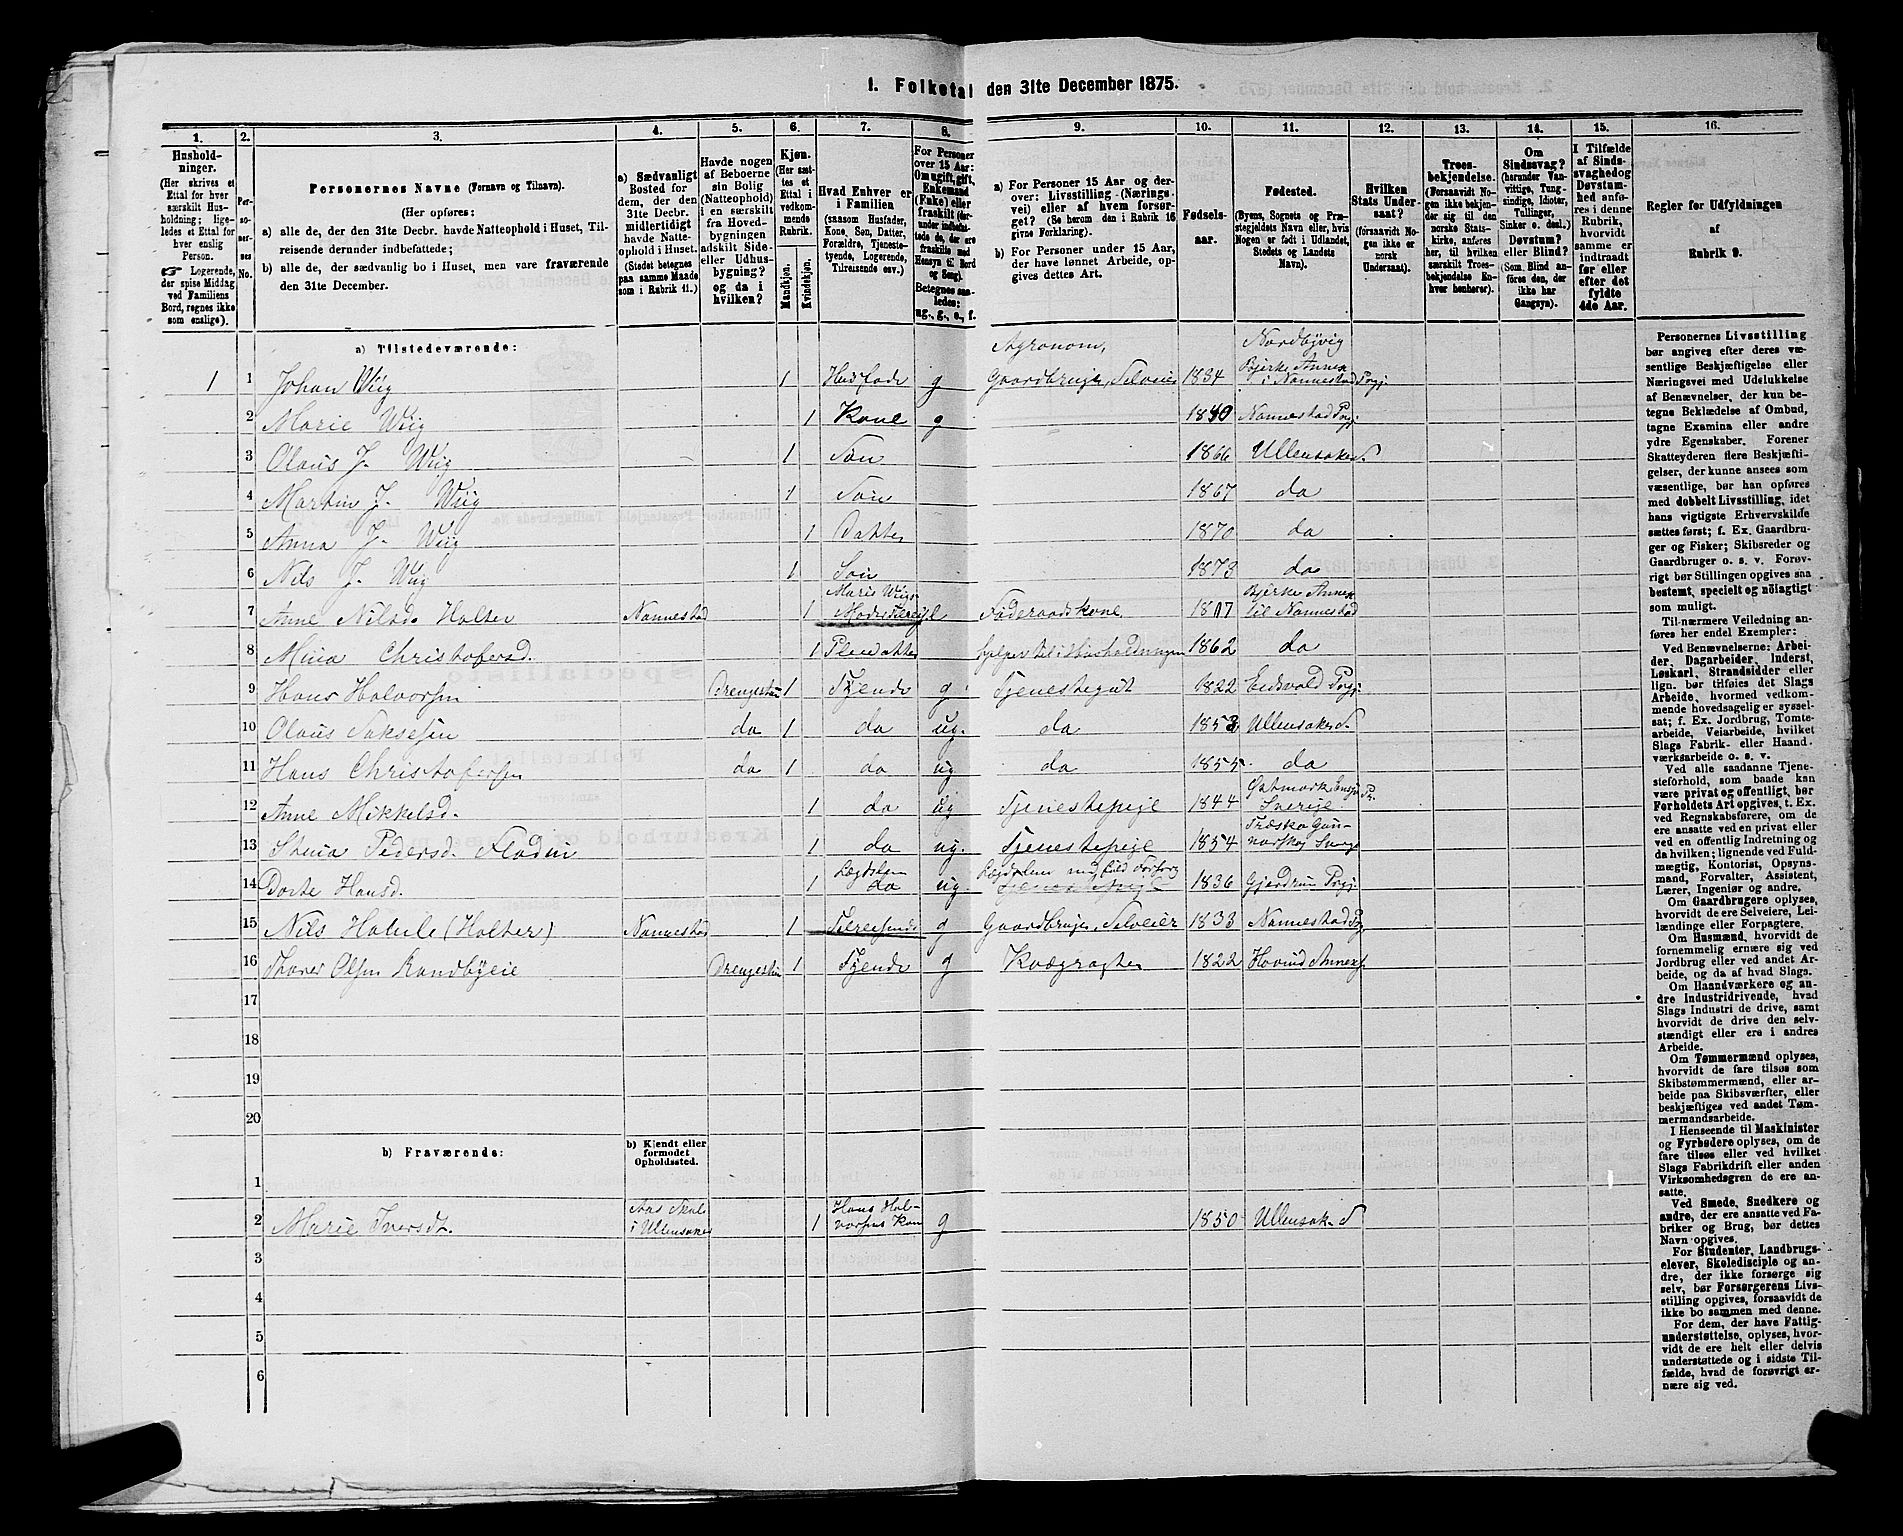 1. Folketal den 31te December 1875.
1. 2. 3. 4. 5. 6. 7. 8. 9. 10. 11. 12. 13. 14. 15. 16.
Hushold-
ninger.
(Her skrives et
Ettal for hver
særskilt Hus-
holdning; lige-
ledes et Ettal for
hver enslig
Person.
☞ Logerende,
der spise Middag
ved Familiens
Bord, regnes ikke
som enslige).
Per-
so-
ner-
nes
No.
Personernes Navne (Fornavn og Tilnavn).
(Her opføres:
a) alle de, der den 31te Decbr. havde Natteophold i Huset, Til-
reisende derunder indbefattede;
b) alle de, der sædvanlig bo i Huset, men vare fraværende
den 31te December.
a) Sædvanligt
Bosted for
dem, der den
31te Decbr.
midlertidigt
havde Natte-
ophold i Huset.
(Stedet betegnes
paa samme Maade
som i Rubrik 11.)
Havde nogen
af Beboerne
sin Bolig
(Natteophold)
i en særskilt
fra Hoved-
bygningen
adskilt Side-
eller Udhus-
bygning?
og da i
hvilken?
Kjøn.
(Her sæt-
tes et
Ettal i
vedkom-
mende
Rubrik.
Mandkjøn.
Kvindekjøn.
Hvad Enhver er
i Familien
(saasom Husfader,
Kone, Søn, Datter,
Forældre, Tjeneste-
tyende, Logerende,
Tilreisende osv.)
For Personer
over 15 Aar:
Om ugift, gift,
Enkemand
(Enke) eller
fraskilt
Hensyn til Bord
og Seng).
Betegnes saa-
ledes:
ug., g., e., f.
a) For Personer 15 Aar og der-
over: Livsstilling (Nærings-
vei) eller af hvem forsør-
get? (Se herom den i Rubrik 16
givne Forklaring).
b) For Personer under 15 Aar,
der have lønnet Arbeide, op-
gives dettes Art.
Fødsels-
aar.
Fødested.
(Byens, Sognets og Præ-
stegjeldets Navn eller, hvis
Nogen er født i Udlandet,
Stedets og Landets
Navn).
Hvilken
Stats Under-
saat?
(forsaavidt No-
gen ikke er
norsk
Undersaat).
Troes-
bekjendelse.
(Forsaavidt No-
gen ikke bekjen-
der sig til den
norske Stats-
kirke, anføres
her, til hvilken
særskilt Troes-
bekjendelse En-
hver henhører).
Om
Sindssvag?
(herunder Van-
vittige, Tung-
sindige, Idioter,
Tullinger,
Sinker o. desl.)
Døvstum?
eller Blind?
(Som Blind an-
føres den, der
ikke har
Gangsyn).
I Tilfælde
af Sinds-
svaghed og
Døvstum-
hed anfø-
res i denne
Rubrik,
hvorvidt
samme er
indtraadt
før eller
efter det
fyldte
4de Aar.
Regler for Udfyldningen
af
Rubrik 9.
a) Tilstedeværende:
1 1 Johan Wiig 1 Husfader g Agronom, Gaardbruger, Selveier 1834 Nordbyvig Bjerke Annex i Nannestad Prgj.
2 Marie Wiig 1 Kone g 1840 Nannestad Prgj.
3 Olaus J. Wiig 1 Søn 1866 Ullensaker S.
4 Martin J. Wiig 1 Søn 1867 do
5 Anna J. Wiig 1 Datter 1870 do
6 Nils J. Wiig 1 Søn 1873 do
7 Anne Nilsd. Holter Nannestad 1 Marie Wiigs Føderaadskone 1817 Bjerke Annex til Nannestad
8 Mina Christofersd. 1 Pleiedatter hjelper til i Husholdningen 1862 do
9 Hans Halvorsen Drengestu 1 Tyende g Tjenestegut 1822 Eidsvold Prgj.
10 Olaus Saksesen do 1 do ug. do 1853 Ullensaker S.
11 Hans Christofersen do 1 do ug do 1855 do
12 Anne Mikkelsd. 1 do ug Tjenestepige 1844 Sverige
13 Stina Pedersd. Flodin 1 do ug. Tjenestepige 1854
14 Dorte Hansd. 1 Lægdslem do ug. Tjenestepige 1836 Gjerdrum Prgj.
15 Nils Haberle (Holter) Nannestad 1 Tilreisende g Gaardbruger, Selveier 1833 Nannestad Prg
16 Thorer Olsen Randbyeie Drengestu 1 Tyende g Kvægrøgter 1822 Hovind Annex
17
18
19
20
b) Fraværende:
b) Kjendt eller
formodet
Opholdssted.
1
2 Marie Iversdt. Aas Skole i Ullensaker 1 Hans Halvorsens Kone g 1850 Ullensaker S
3
4
5
6
Personernes Livsstilling
bør angives efter deres væ-
sentlige Beskjæftigelse eller
Næringsvei med Udelukkelse
af Benævnelser, der kun be-
tegne Beklædelse af Ombud,
tagne Examina eller andre
ydre Egenskaber. Forener
Skatteyderen flere Beskjæfti-
gelser, der kunne ansees som
væsentlige, bør han opføres
med dobbelt Livsstilling, idet
hans vigtigste Erhvervskilde
sættes først; f. Ex. Gaardbru-
ger og Fisker; Skibsreder og
Gaardbruger o. s. v. Forøv-
rigt bør Stillingen opgives saa
bestemt, specielt og nøiagtigt
som muligt.
Til nærmere Veiledning an-
føres her endel Exempler:
Ved Benævnelserne: Arbei-
der, Dagarbeider, Inderst,
Løskarl, Strandsidder eller
lign. bør tilføies det Slags
Arbeide, hvormed vedkom-
mende hovedsagelig er syssel-
sat; f. Ex. Jordbrug, Tomte-
arbeide, Veiarbeide, hvilket
Slags Fabrik- eller Haand-
værksarbeide o. s. v.
Ved alle saadanne Tjene-
steforhold, som baade kan
være privat og offentligt, bør
Forholdets Art opgives, t. Ex.
ved Regnskabsførere, om de
ere ansatte ved en privat eller
ved en offentlig Indretning og
da hvilken; lignende ved Fuld-
mægtig, Kontorist, Opsyns-
mand, Forvalter, Assistent,
Lærer, Ingeniør og andre.
Om Gaardbrugere oplyses,
hvorvidt de ere Selveiere, Lei-
lændinge eller Forpagtere.
Om Husmænd, hvorvidt de
fornemmelig ernære sig ved
Jordbrug eller ved andet Ar-
beide, og da af hvad Slags.
Om Haandværkere og an-
dre Industridrivende, hvad
Slags Industri de drive, samt
hvorvidt de drive den selv-
stændigt eller ere i andres
Arbeide.
Om Tømmermænd oplyses,
hvorvidt de fare tilsøs som
Skibstømmermænd, eller ar-
beide paa Skibsværfter, eller
beskjæftiges ved andet Tøm-
mermandsarbeide.
I Henseende til Maskinister
og Fyrbødere oplyses, om de
fare tilsøs eller ved hvilket
Slags Fabrikdrift eller anden
Virksomhedsgren de ere an-
satte.
Ved Smede, Snedkere og
andre, der ere ansatte ved Fa-
briker og Brug, bør dettes
Navn opgives.
For Studenter, Landbrugs-
elever, Skoledisciple og an-
dre, der ikke forsørge sig
selv, bør Forsørgerens Livs-
stilling opgives, forsaavidt de
ikke bo sammen med denne.
For dem, der have Fattig-
understøttelse, oplyses, hvor-
vidt de ere helt eller delvis
understøttede og i sidste Til-
fælde, hvad de forøvrigt er-
nære sig ved.